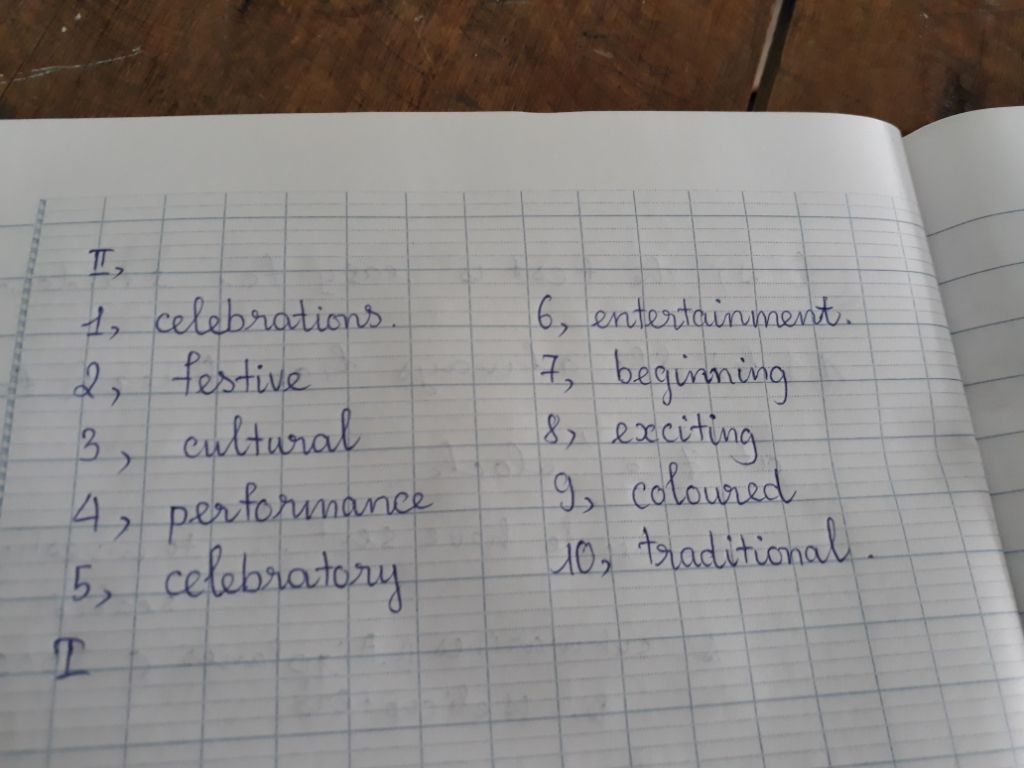 II,
1, celebrations.
2, festive
3, cultural
4, performance
5, celebratory
6, entertainment.
7, beginning
8, exciting
9, coloured
10, traditional.
I